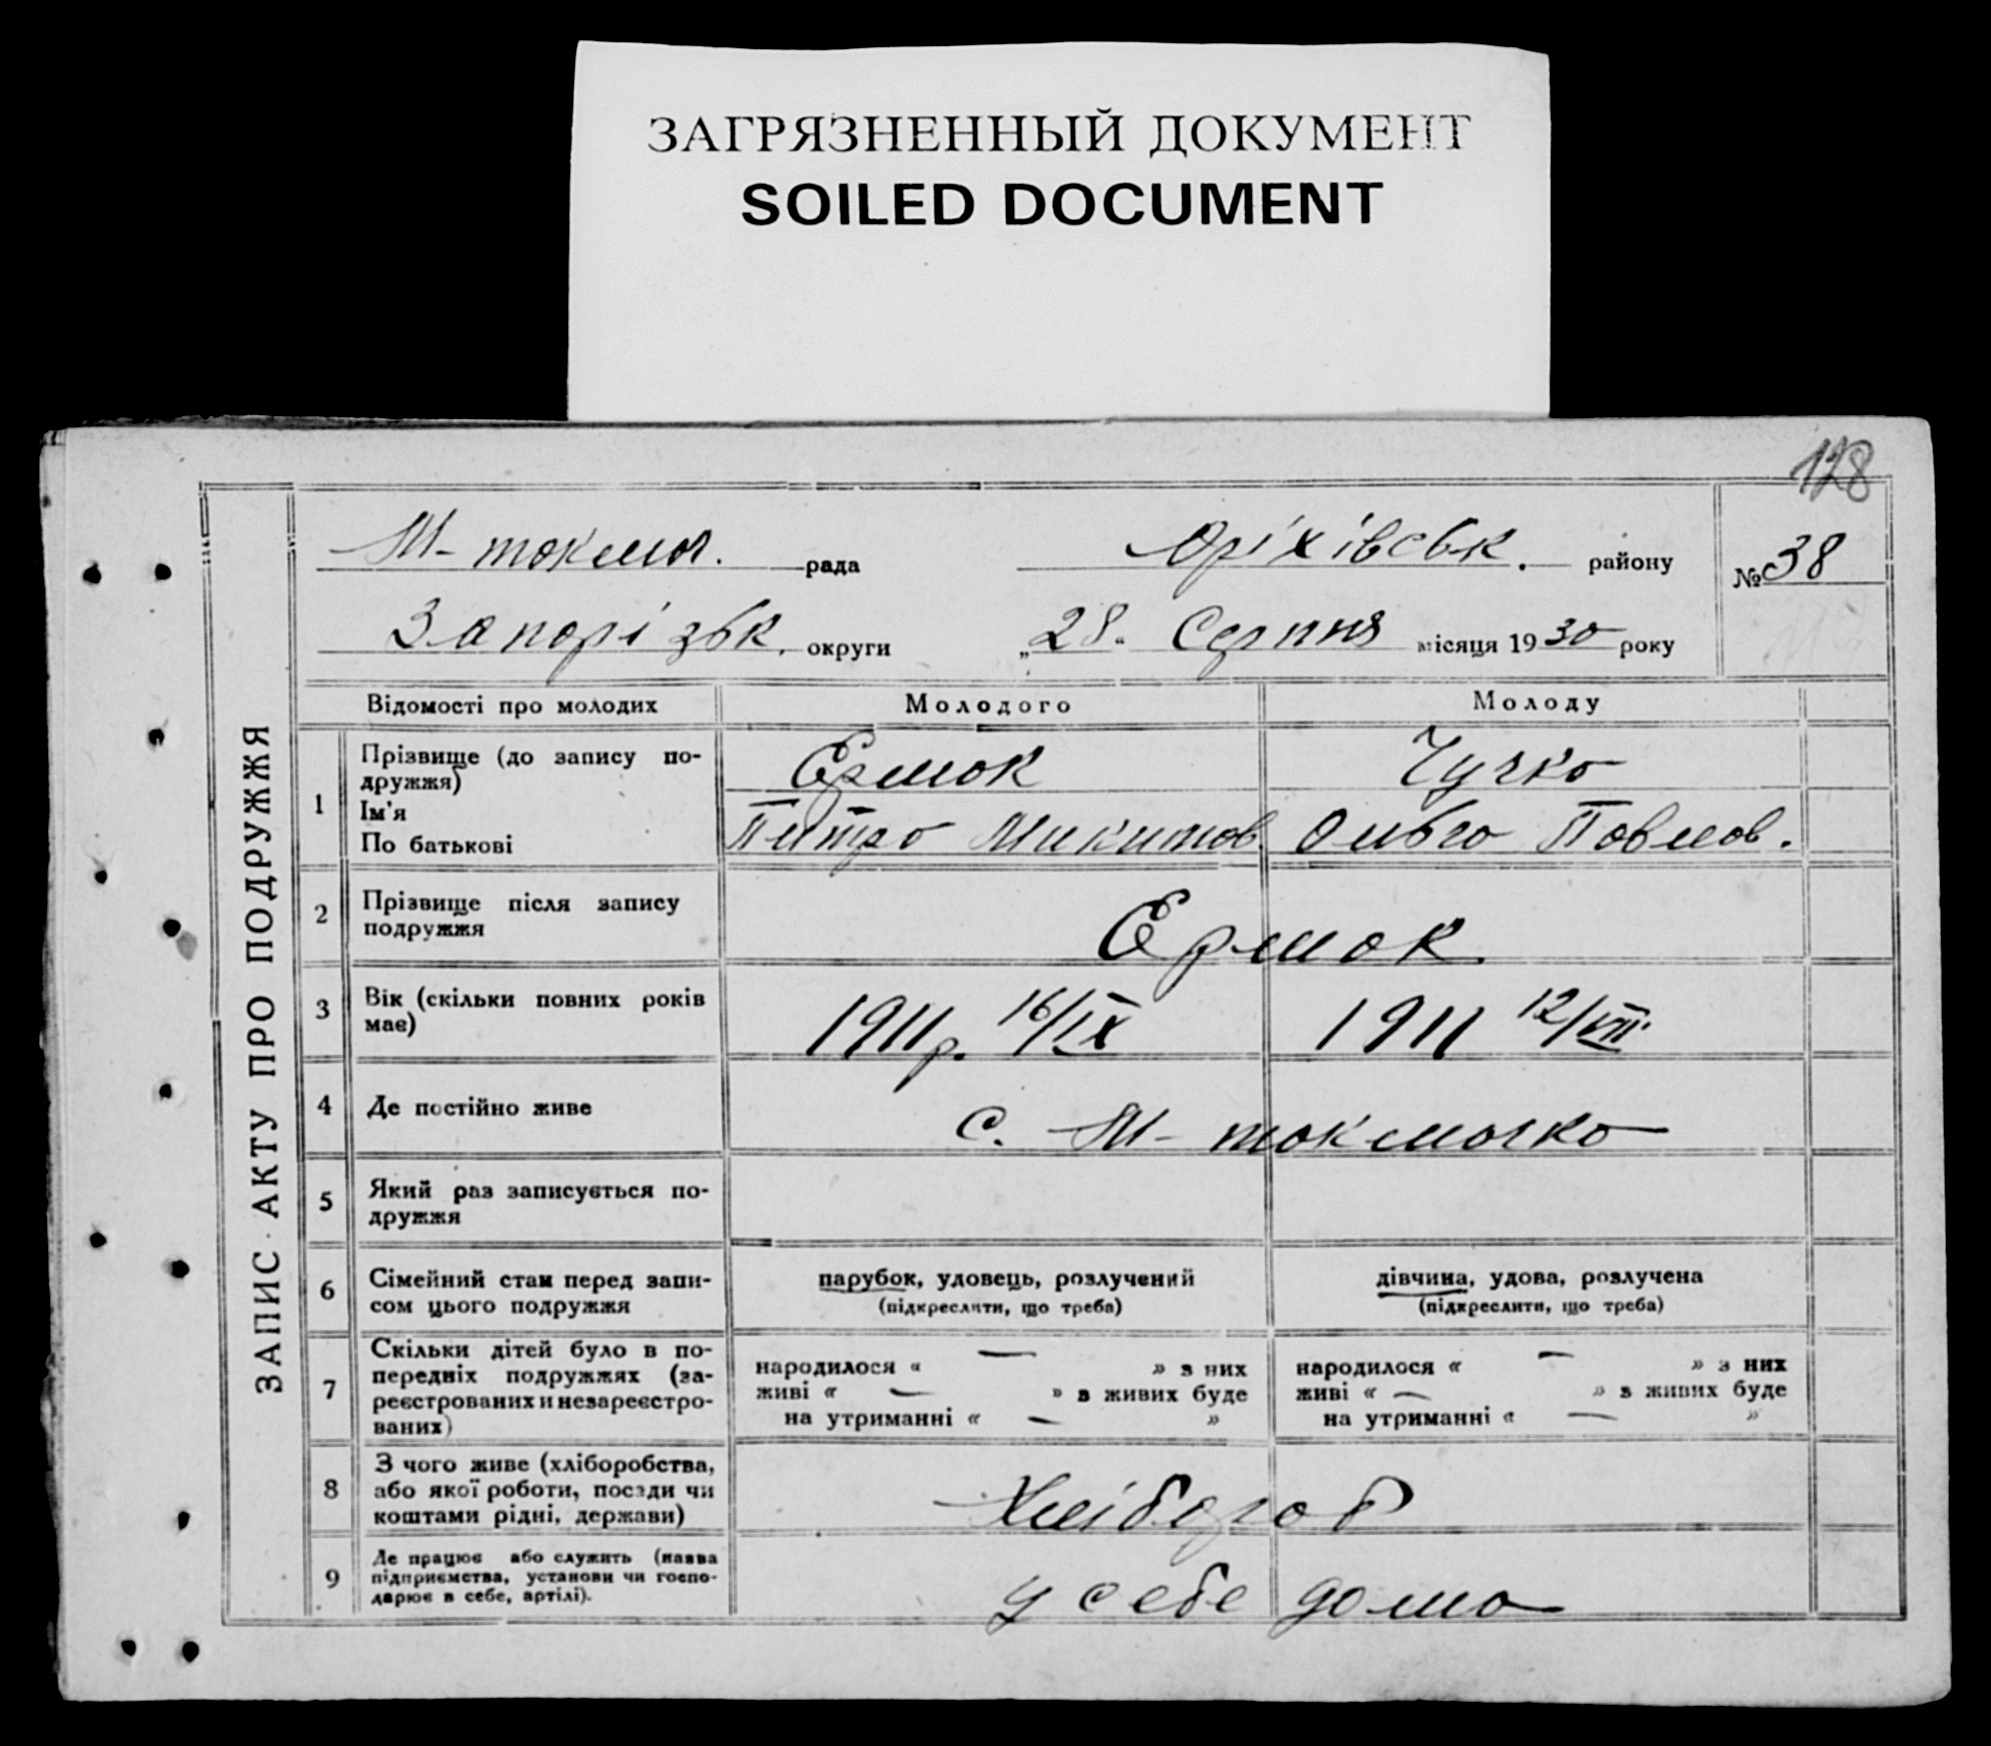 ЗАГРЯЗНЕННЫЙ ДОКУМЕНТ
SOILED DOCUMENT
128
ЗАПИС АКТУ ПРО ПОДРУЖЖЯ
М-токмач. рада Оріхівськ. району №38
Запорізьк. округи „28" Серпня місяця 1930 року
Відомості про молодих Молодого Молоду
1 Прізвище (до запису по-
дружжя) Ермак Чучко
Ім'я
По батькові Питро Микитов. Ольга Павлов.
2 Прізвище після запису
подружжя Ермак
3 Вік (скільки повних років
має) 1911р. 16/IX 1911 12/VII
4 Де постійно живе с. М-токмачка
5 Який раз записується по-
дружжя
6 Сімейний стан перед запи-
сом цього подружжя
парубок, удовець, розлучений
(підкреслити, що треба)
дівчина, удова, розлучена
(підкреслити, що треба)
7 Скільки дітей було в по-
передніх подружжях (за-
реєстрованих и незареєстро-
ваних)
народилося « — » з них
живі « — » з живих буде
на утриманні « — »
народилося « — » з них
живі « — » з живих буде
на утриманні « — »
8 З чого живе (хліборобства,
або якої роботи, посади чи
коштами рідні, держави)
Хлібороб
9 Де працює або служить (назва
підприємства, установи чи госпо-
дарює в себе, артілі).
у себе дома